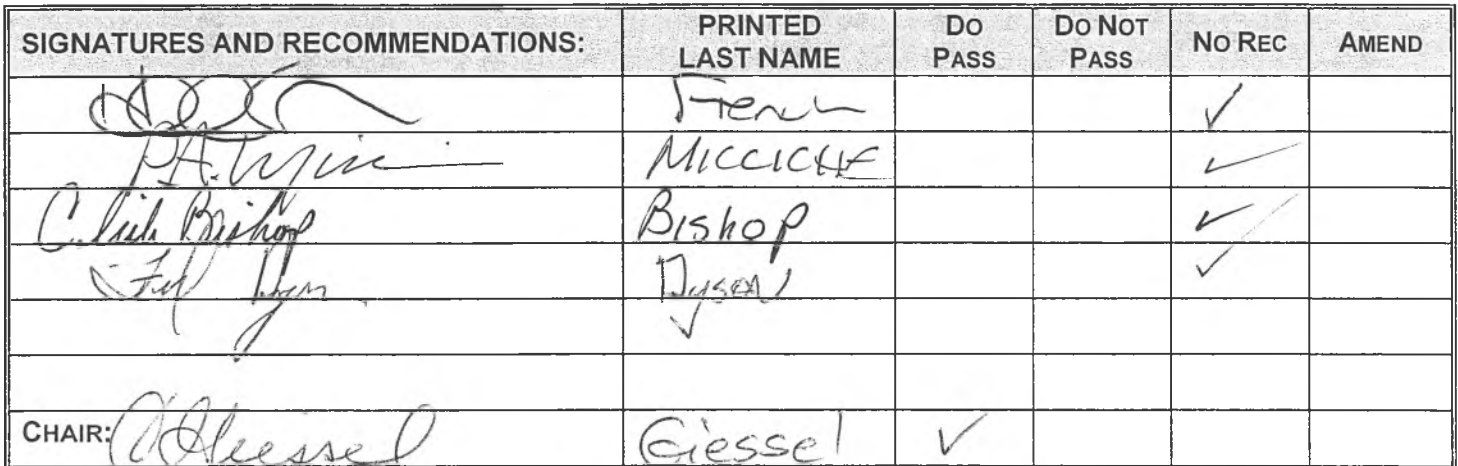 SIGNATURES AND RECOMMENDATIONS: PRINTED LAST NAME DO PASS DO NOT PASS NO REC AMEND
French ✓
P.A. MICCICHE ✓
C. Bishop Bishop ✓
Dyson ✓
CHAIR: CGiessel Giessel ✓